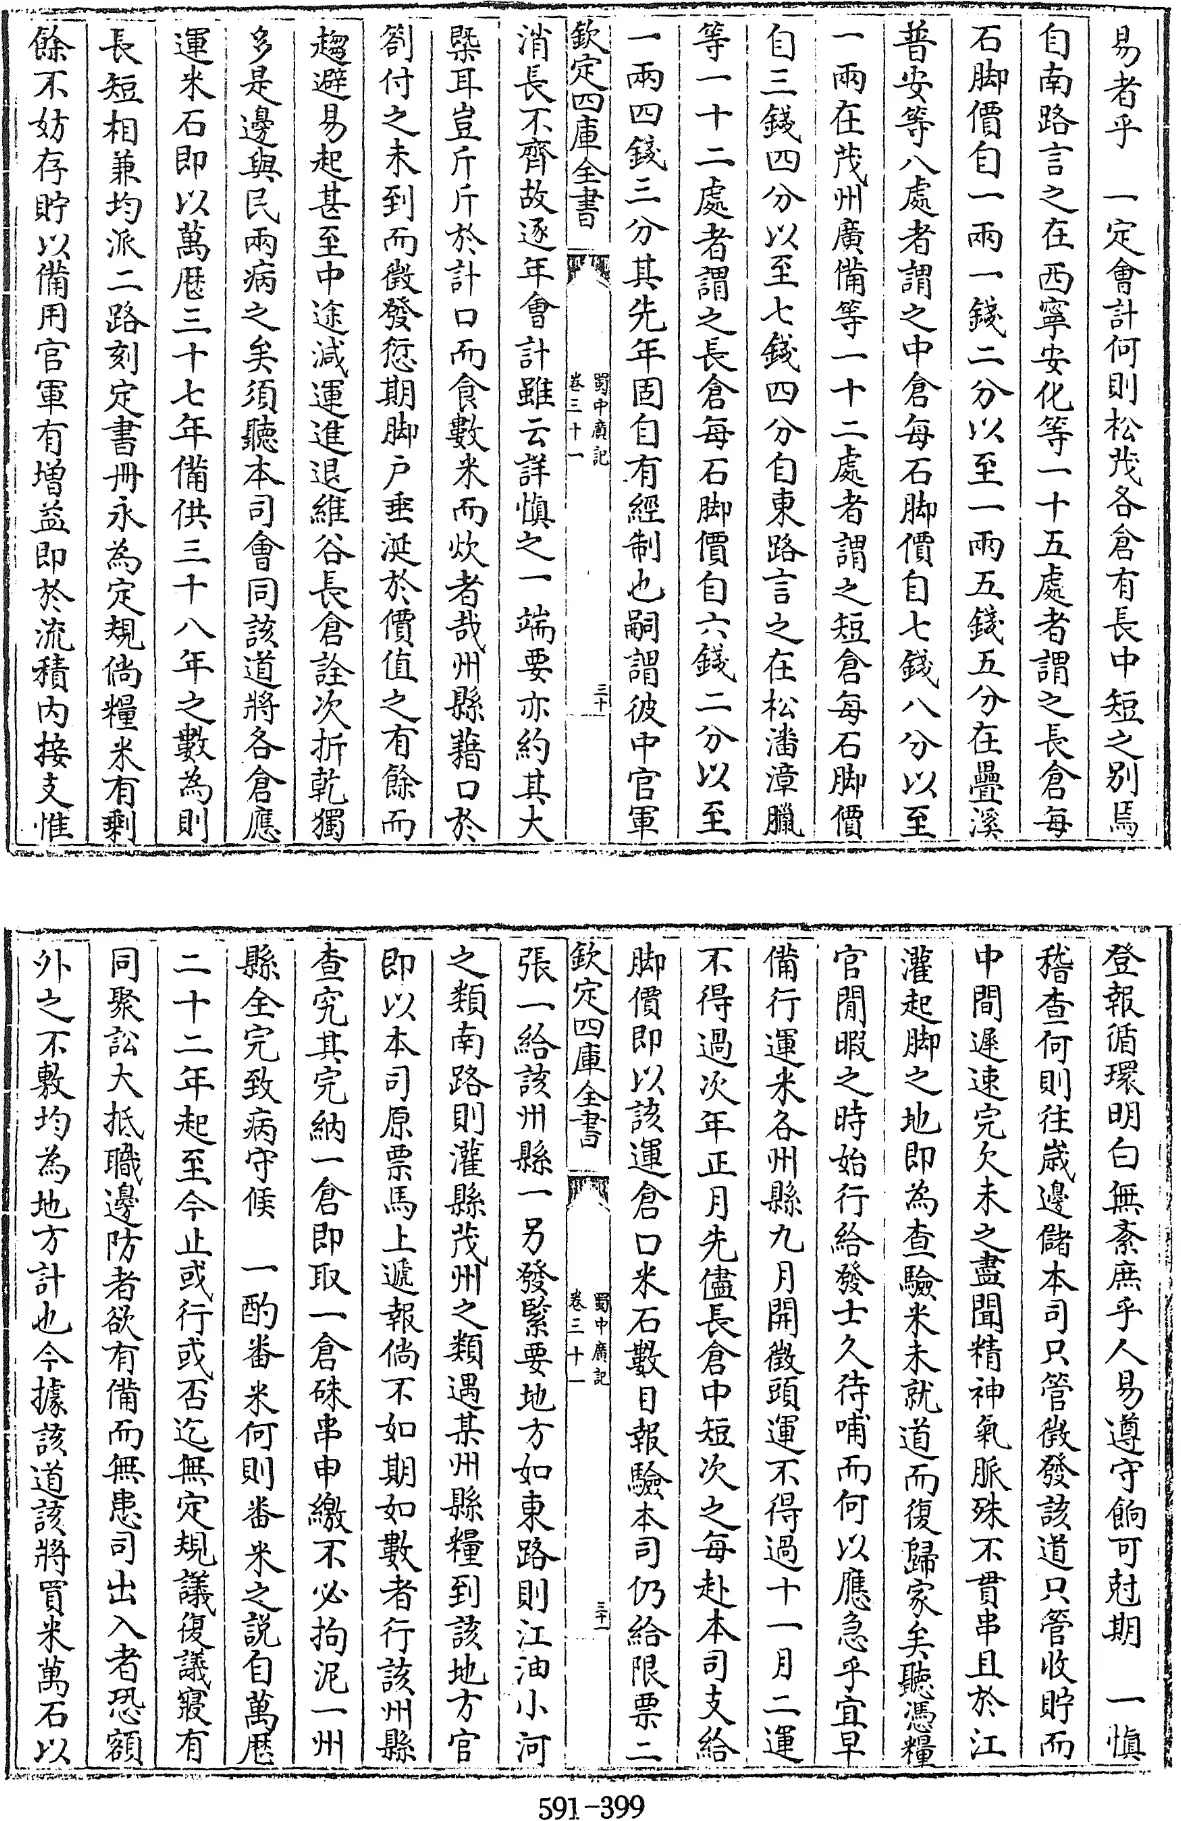 易者乎　一定會計何則松茂各倉有長中短之別焉
自南路言之在西寧安化等一十五處者謂之長倉每
石脚價自一兩一錢二分以至一兩五錢五分在疊溪
普安等八處者謂之中倉每石脚價自七錢八分以至
一兩在茂州廣備等一十二處者謂之短倉每石脚價
自三錢四分以至七錢四分自東路言之在松潘漳臘
等一十二處者謂之長倉每石脚價自六錢二分以至
一兩四錢三分其先年固自有經制也嗣謂彼中官軍
欽定四庫全書
蜀中廣記
卷三十一
三十
消長不齊故逐年會計雖云詳慎之一端要亦約其大
槩耳豈斤斤於計口而食數米而炊者哉州縣藉口於
劄付之未到而徵發愆期脚户垂涎於價值之有餘而
趨避易起甚至中途減運進退維谷長倉詮次折乾獨
多是邊與民兩病之矣須聽本司會同該道將各倉應
運米石即以萬厯三十七年備供三十八年之數為則
長短相兼均派二路刻定書册永為定規倘糧米有剩
餘不妨存貯以備用官軍有增益即於流積内接支惟
登報循環明白無紊庶乎人易遵守餉可尅期　一慎
稽查何則往歲邊儲本司只管徵發該道只管收貯而
中間遲速完欠未之盡聞精神氣脈殊不貫串且於江
灌起脚之地即為查驗米未就道而復歸家矣聽憑糧
官閒暇之時始行給發士久待哺而何以應急乎宜早
備行運米各州縣九月開徵頭運不得過十一月二運
不得過次年正月先儘長倉中短次之每赴本司支給
脚價即以該運倉口米石數目報驗本司仍給限票二
欽定四庫全書
蜀中廣記
卷三十一
三十一
張一給該州縣一另發緊要地方如東路則江油小河
之類南路則灌縣茂州之類遇某州縣糧到該地方官
即以本司原票馬上遞報倘不如期如數者行該州縣
查究其完納一倉即取一倉硃串申繳不必拘泥一州
縣全完致病守候　一酌畨米何則畨米之説自萬厯
二十二年起至今止或行或否迄無定規議復議寢有
同聚訟大抵職邊防者欲有備而無患司出入者恐額
外之不敷均為地方計也今據該道該將買米萬石以
591-399